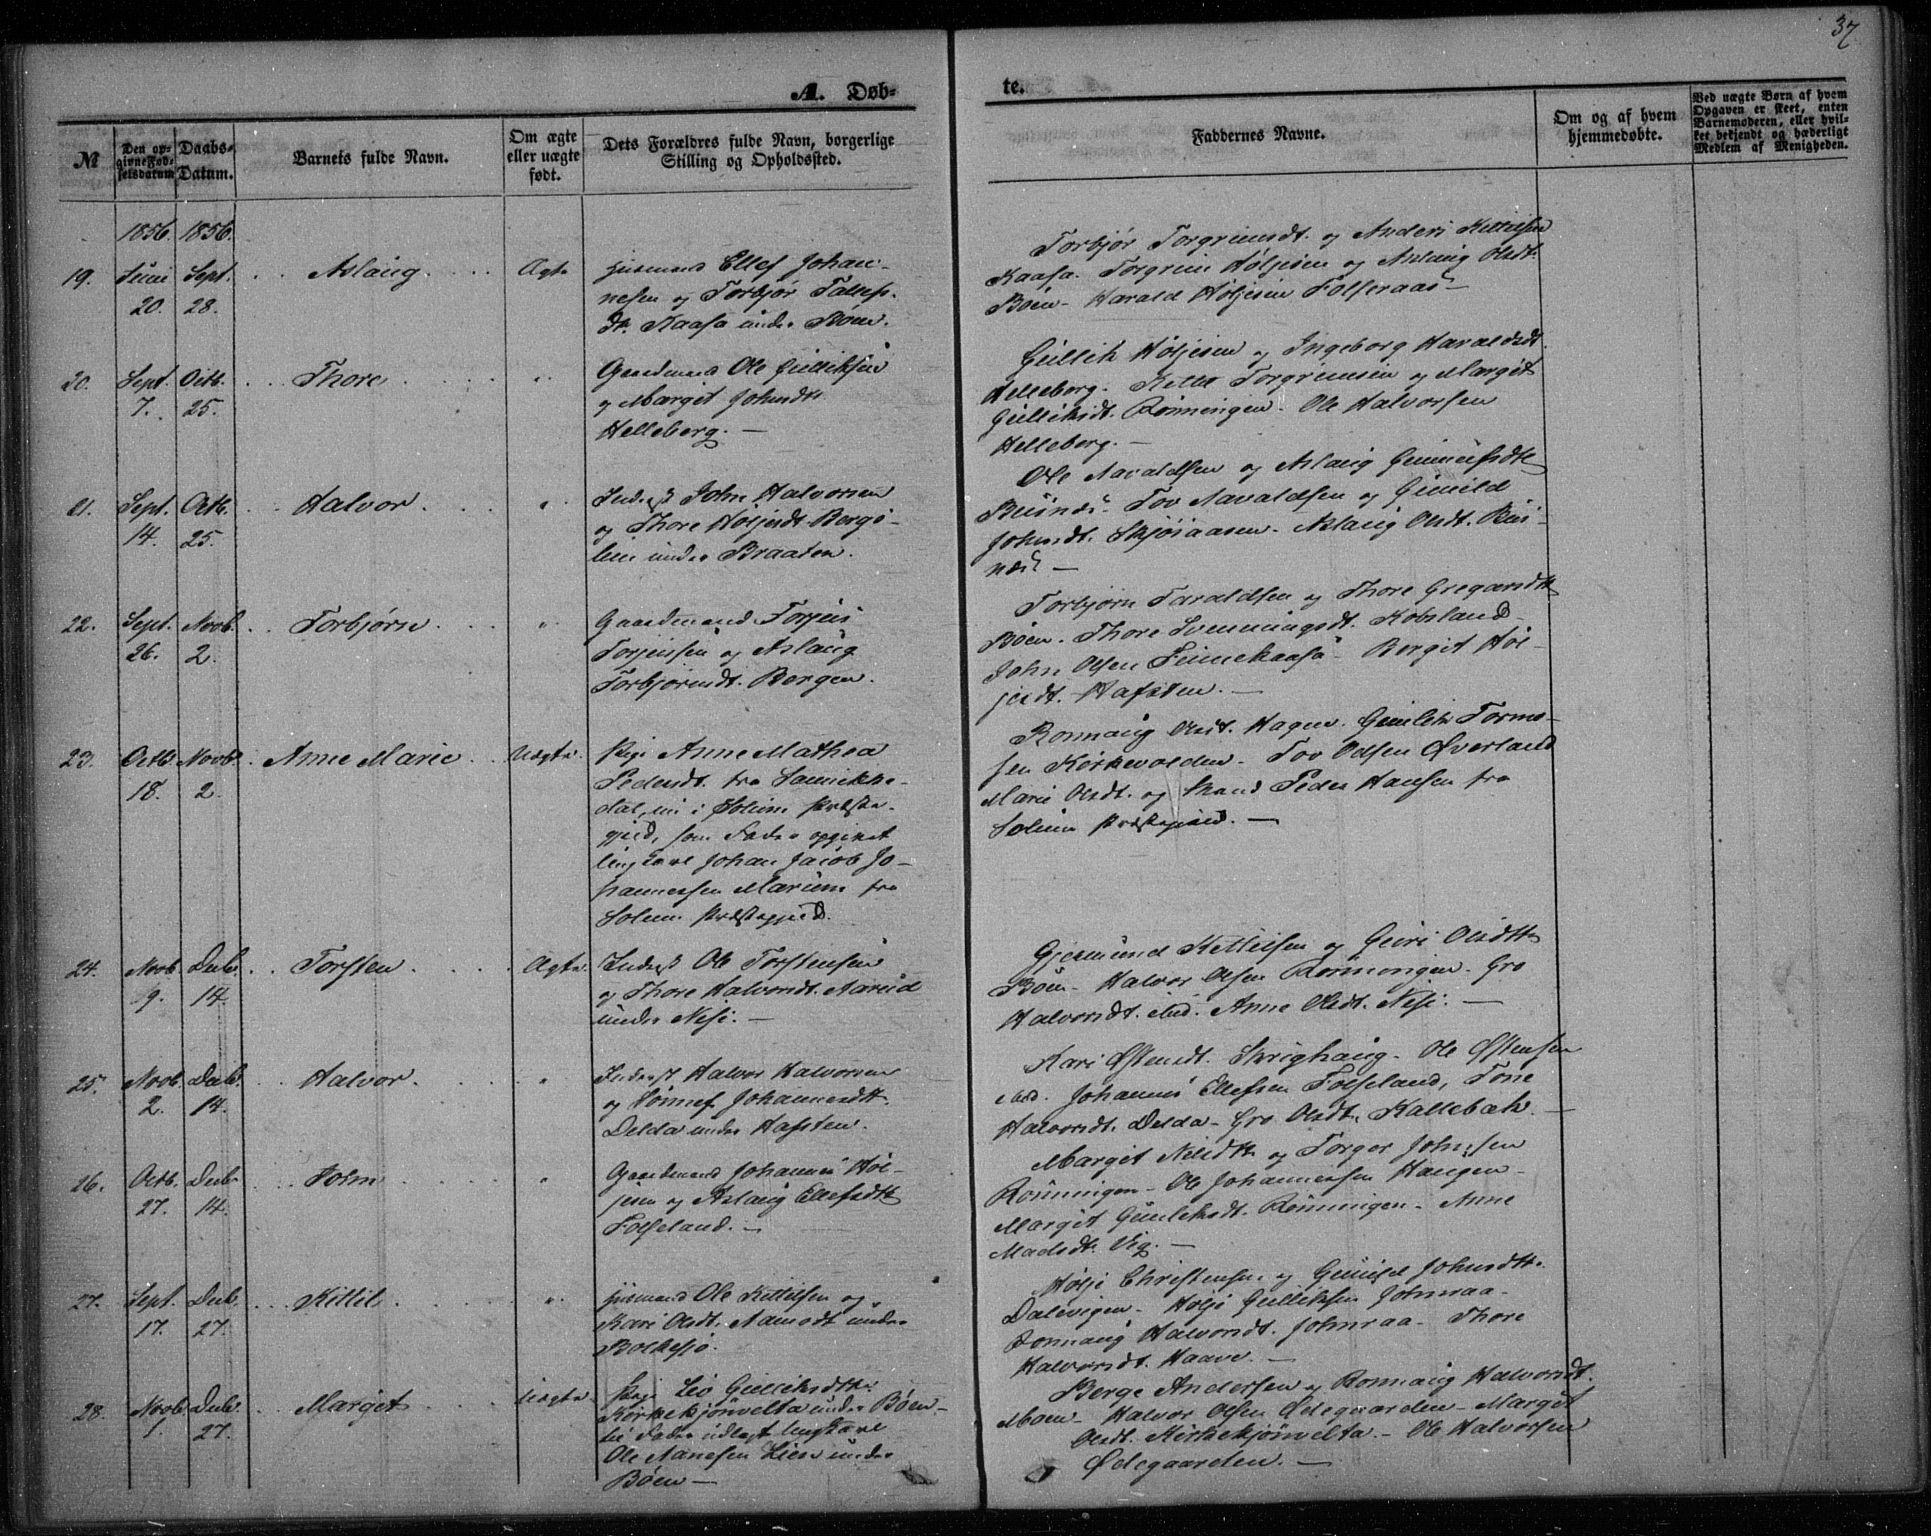 37
A. Døb-
te.
№
Den op-
givne Fød-
selsdatum
Daabs-
Datum.
Barnets fulde Navn.
Om ægte
eller uægte
født.
Dets Forældres fulde Navn, borgerlige
Stilling og Opholdssted.
Faddernes Navne.
Om og af hvem
hjemmedøbte.
Ved uægte Børn af hvem
Opgaven er skeet, enten
Barnemoderen, eller hvil-
ket bekjendt og hæderligt
Medlem af Menigheden.
1856. 1856.
19. Juni 20. Sept. 28. Aslaug. Ægte
Husmand Ellef Johan-
nesen og Torbjør
dt. Kaasa under Bøen.
Torbjør Torgrimsdt. og Anders Kittilsen
Kaasa. Torgrim Høljesen og Aslaug Olsdt.
Bøen - Harald Høljesen Folseraas -
20. Sept. 7. Octb. 25. Thore. "
Gaardmand Ole Gulliksen
og Margit Johnsdt.
Helleberg. -
Gullik Høljesen og Ingeborg Haraldsdt.
Helleberg. Torgrimsen og Margit
Gulliksdt. Rønningen. Ole Halvorsen
Helleberg. -
21. Sept. 14. Octb. 25. Halvor. "
Inderst John Halvorsen
og Thore Høljesdt. Bergs-
lien under Braaten.
Ole Navaldsen og Aslaug Gunnulfsdt.
Busnes. Tov Navaldsen og Gunild
Johnsdt. Aslaug Olsdt. Bus-
nes -
22. Sept. 26. Novb. 2. Torbjørn. "
Gaardmand Torjus
Torjussen og Aslaug
Torbjørnsdt. Bergen.
Torbjørn Taraldsen og Thore Gregarsdt.
Bøen. Thore Svenningsdt. Kobsland
John Olsen Finnekaasa - Bergit Høl-
jesdt. Hafsten. -
23. Octb. 18. Novb. 2. Anne Marie. Uægte.
Pige Anne Mathea
Pedersdt. fra Sannikke-
dal, nu i Solum Præste-
gjeld, som Fader opgivet
Ungkarl Johan Jacob Jo-
hannessen fra
Solum Præstegjeld.
Ronnaug Olsdt. Hagen. Gunlek Tormo-
sen Kirkevolden - Tov Olsen Øverland
Marie Olsdt. og Peder Hansen fra
Solum Præstegjeld. -
24. Novb. 9. Decb. 14. Torsten. Ægte.
Inderst Ole Torstensen
og Thore Halvorsdt.
under Nesi. -
Gjermund Kettilsen og Guri Olsdt.
Bøen - Halvor Olsen Rønningen. Gro
Halvorsdt. ibid. Anne Olsdt. Nesi. -
25. Novb. 2. Decb. 14. Halvor. "
Inderst Halvor Halvorsen
og Sønnef Johannesdt.
Delda under Hafsten.
Kari Østensdt. Skrighaug - Ole Østensen
ibid. Johannes Ellefsen Folseland, Tone
Halvorsdt. Delda - Gro Olsdt. Kallebæk -
26. Octb. 27. Decb. 14. John "
Gaardmand Johannes Høl-
jesen og Aslaug Ellefsdt.
Folseland. -
Margit Nilsdt. og Torger Johnsen
Rønningen - Ole Johannessen Haugen -
Margit Gunleksdt. Rønningen - Anne
Madsdt. Vig. -
27. Sept. 17. Decb. 27. Kittil. "
Husmand Ole Kittilsen og
Kari Olsdt. Aamodt under
Bolkesjø.
Hølje Christensen og Gunild Johnsdt.
Dalsvigen - Hølje Gulliksen Johnraa -
Ronnaug Halvorsdt. Johnraa - Thore
Halvorsdt. Haave. -
28. Novb. 1. Decb. 27. Margit. Uægte.
Pige Liv Gulliksdt.
Kirkekjønvelta under Bøen -
til Fader udlagt Ungkarl
Ole Nanesen Lien under
Bøen -
Berge Andersen og Ronnaug Halvorsdt.
Moen - Halvor Olsen Ødegaarden - Margit
Olsdt. Kirkekjønvelta - Ole Halvorsen
Ødegaarden. -